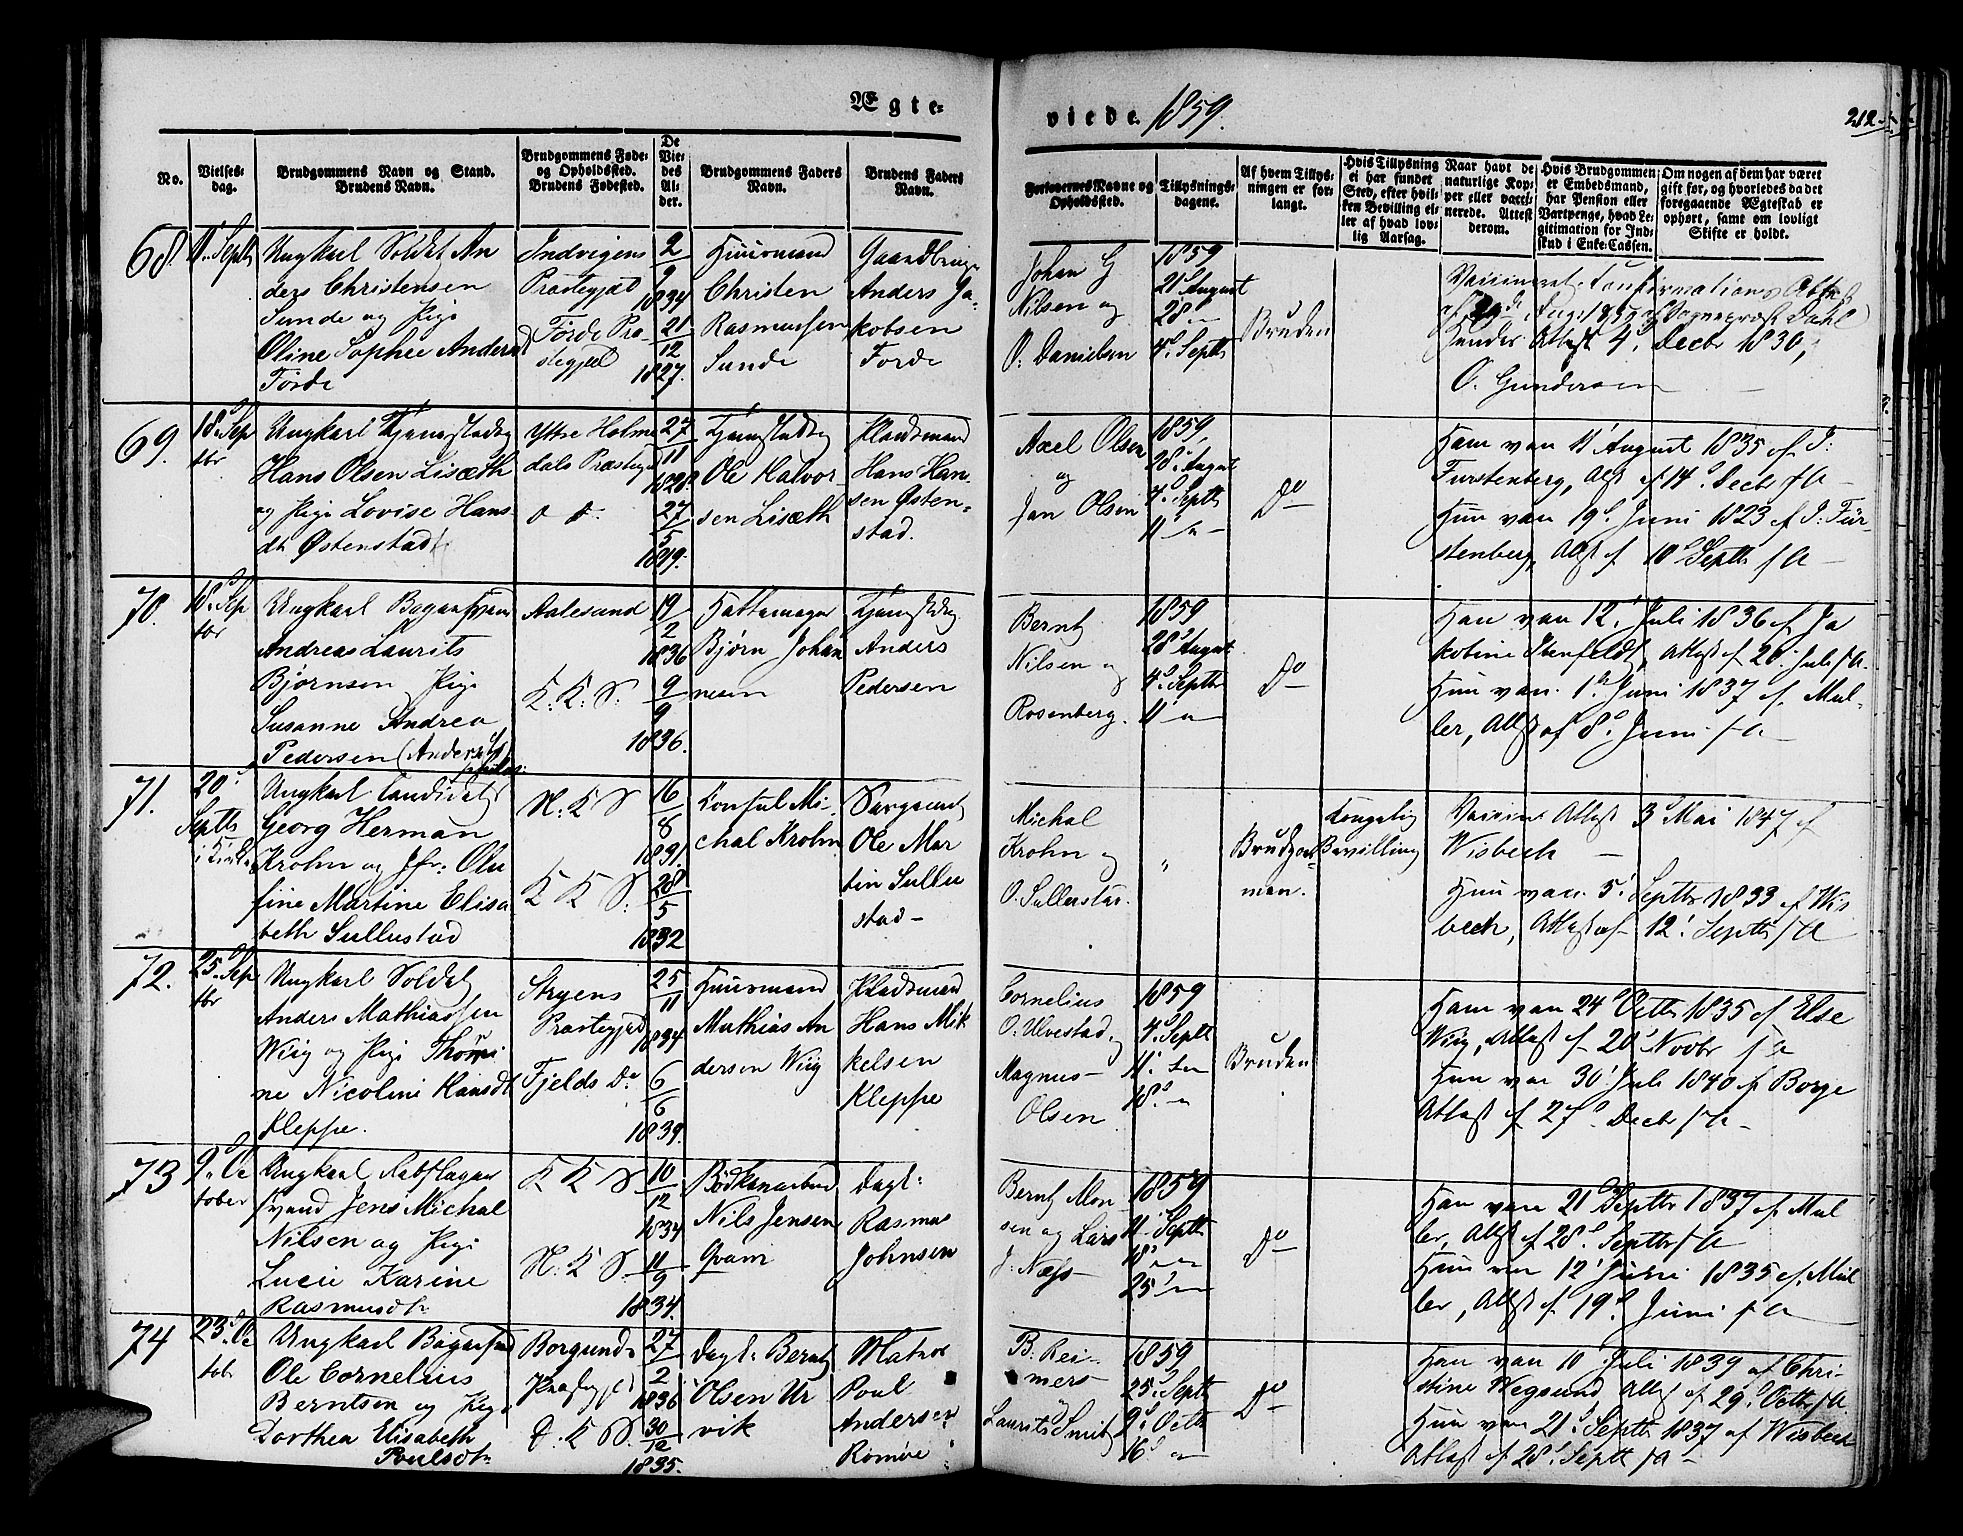 Ægte-
viede 1859.
212
No.
Vielses-
dag.
Brudgommens Navn og Stand.
Brudens Navn.
Brudgommens Føde-
og Opholdssted.
Brudens Fødested.
De
Vie-
des
Al-
der.
Brudgommens Faders
Navn.
Brudens Faders
Navn.
Forlovernes Navne og
Opholdssted.
Tillysnings-
dagene.
Af hvem Tillys-
ningen er for-
langt.
Hvis Tillysning
ei har fundet
Sted, efter hvil-
ken Bevilling el-
ler af hvad lov-
lig Aarsag.
Naar havt de
naturlige Kop-
per eller vacci-
nerede. Attest
derom.
Hvis Brudgommen
er Embedsmand,
har Pension eller
Vartpenge, hvad Le-
gitimation for Ind-
skud i Enke-Cassen.
Om nogen af dem har været
gift før, og hvorledes da det
foregaaende Ægteskab er
ophørt, samt om lovligt
Skifte er holdt.
68.
11. Septb
Ungkarl Soldat An
ders Christensen
Sunde og Pige
Oline Sophie Andersd
Førde
Indvigens
Præstegjæld
Førde Præ-
stegjeld
2
9
1834
21
12
1827.
Huusmand
Christen
Rasmussen
Sunde
Gaardbruge
Anders Ja-
kobsen
Førde
Johan G
Nilsen og
O. Danielsen
1859
21 August
28 "
4 Septb
Bruden
Hendes Attest 4. Decbr 1830,
O. Gundersen
69.
18. Sep
tbr
Ungkarl Tjenestedrg
Hans Olsen Lisæth
og Pige Lovise Hans-
dt Østenstad
Yttre Holme
dals Præstegj
27
11
1828.
27
5
1819.
Tjenestedrg
Ole Halvor-
sen Lisæth
Pladsmand
Hans Han-
sen Østen-
stad.
Axel Olsen
og
Jan Olsen
1859,
28. August
4. Septb
11 "
Do
Ham vac 11 August 1835 af I.
Furstenberg, Att af 14. Decbr s A
Hun vac 19. Juni 1823 af I. Für-
stenberg, Att af 10 Septb s A
70.
18. Sep
tbr
Andreas Laurits
Bjørnsen Pige
Susanne Andrea
Pedersen (Anders
Aalesund
K. K. S.
19
2
1836
9
9
1836.
Hattemager
Bjørn Johan
nesen
Tjenestedrg
Anders
Pedersen
Bernt
Nilsen og
Rosenberg.
1859
28 August
4. Septbr
11 "
Do
Ham vac 12. Juli 1836 af Ja
kobine Stenfeldt, Attest af 20. Juli s A.
Hun vac. 1. Juni 1837 af Mul-
ler, Attst af 8. Juni s A
71.
20.
Septb
Ungkarl Candidat
Georg Herman
Krohn og Jfr: Olu
fine Martine Elisa
beth Sullestad
N. K S
K K S.
16
8
1831.
28
5
1832
Konsul Mi-
chal Krohn
Sergeant
Ole Mar
tin Sulle
stad
Michal
Krohn og
O. Sullestad.
"
Brudgom-
men.
Kongelig
Bevilling
Vaccine Attest 3 Mai 1847 af
Wisbech
Hun vac. 5. Septbr 1833 af Wis
bech, Attest af 12. Septb s A
72.
25. Sep
tbr
Ungkarl Soldat
Anders Mathiassen
Wiig og Pige Thomi
ne Nicoline Hansdt
Kleppe.
Stryens
Præstegjæld
Fjelds Do
25
11
1834
6
6
1839.
Huusmand
Mathias An
dersen Wiig
Pladsmand
Hans Mik
kelsen
Kleppe
Cornelius
O. Ulvestad
Magnus
Olsen
1859
4. Septb
11. "
18. "
Bruden
Ham vac 24 Octbr 1835 af Else
Wiig, Attest af 20 Novbr s A
Hun vac 30 Juli 1840 af Borge
Attest af 27. Decbr s A
73
9. Oc
tober
Ungkarl Rebslager
svend Jens Michal
Nilsen og Pige
Lucie Karine
Rasmusdt
K K S
N. K S.
10
12
1834
11
9
1834.
Bødkerarbeid
Nils Jensen
Qvam
Dagl:
Rasmus
Johnsen
Bernt Mon
sen og Lars
J. Næss
1859
11. Septb
18. "
25 "
Do
Ham vac 21 Septbr 1837 af Mul
ler, Attest af 28. Septbr s A
Hun vac 12. Juni 1835 af Mul
ler, Attest af 19. Juni s A
74
23. Oc
tob
Ungkarl Bøgersvd
Ole Cornelius
Berntsen og Pige
Dorthea Elisabeth
Poulsdt
Borgunds
Præstegjd
D. K S.
27
2
1836
30
12
1835.
Dagl: Bernt
Olsen Ur
vik
Matros
Poul
Andersen
Romøe
B. Rei-
mers
Laurits Smit
1859
25. Septb
9. Octb
16. "
Do
Ham vac 10 Juli 1839 af Chri-
stine Wegsund, Attest af 29. Octbr s A
Hun vac 21. Septbr 1837 af Wisbech
Attest af 28. Septb s A